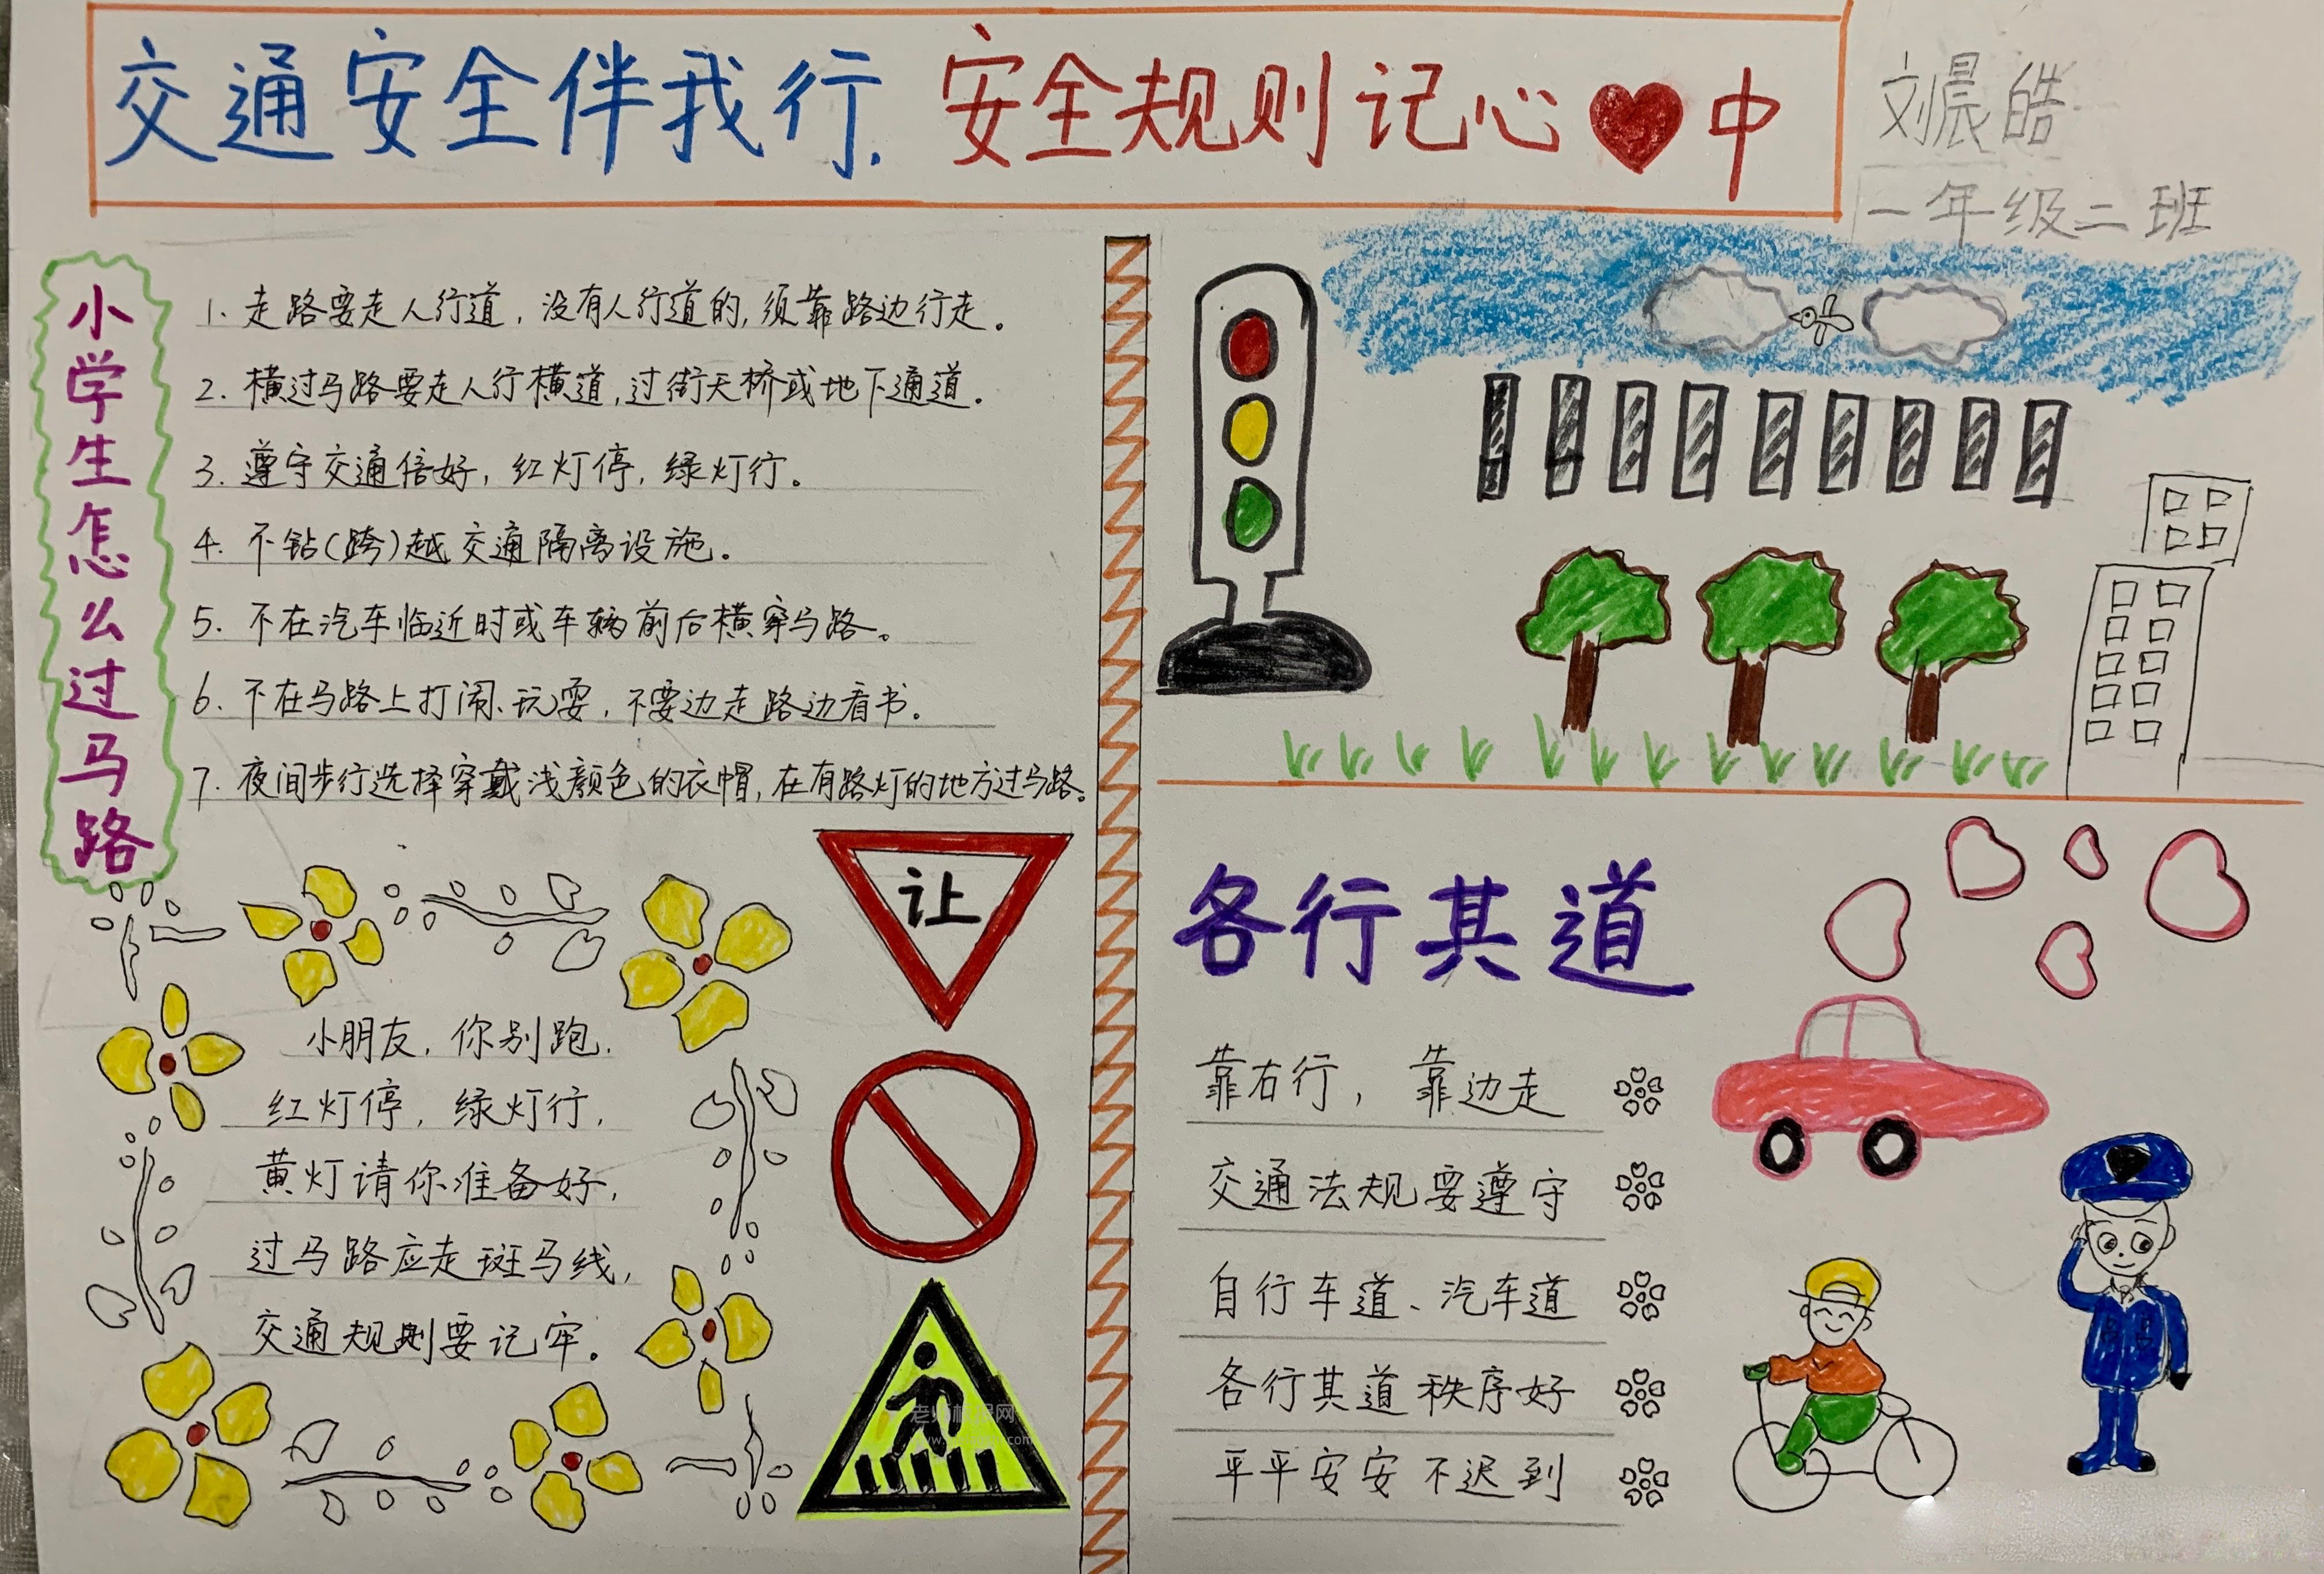 交通安全伴我行.安全规则记心中
刘晨皓
一年级二班
小学生怎么过马路
1.走路要走人行道，没有人行道的，须靠路边行走。
2.横过马路要走人行横道，过街天桥或地下通道.
3.遵守交通倍好，红灯停，绿灯行。
4.不钻(跨)越交通隔离设施。
5.不在汽车临近时或车辆前后横穿马路。
6.不在马路上打闹、玩耍，不要边走路边看书。
7.夜间步行选择穿戴浅颜色的衣帽，在有路灯的地方过马路。
让
小朋友，你别跑，
红灯停，绿灯行，
黄灯请你准备好，
过马路应走斑马线，
交通规则要记牢。
各行其道
靠右行，靠边走
交通法规要遵守
自行车道、汽车道
各行其道秩序好
平平安安不迟到